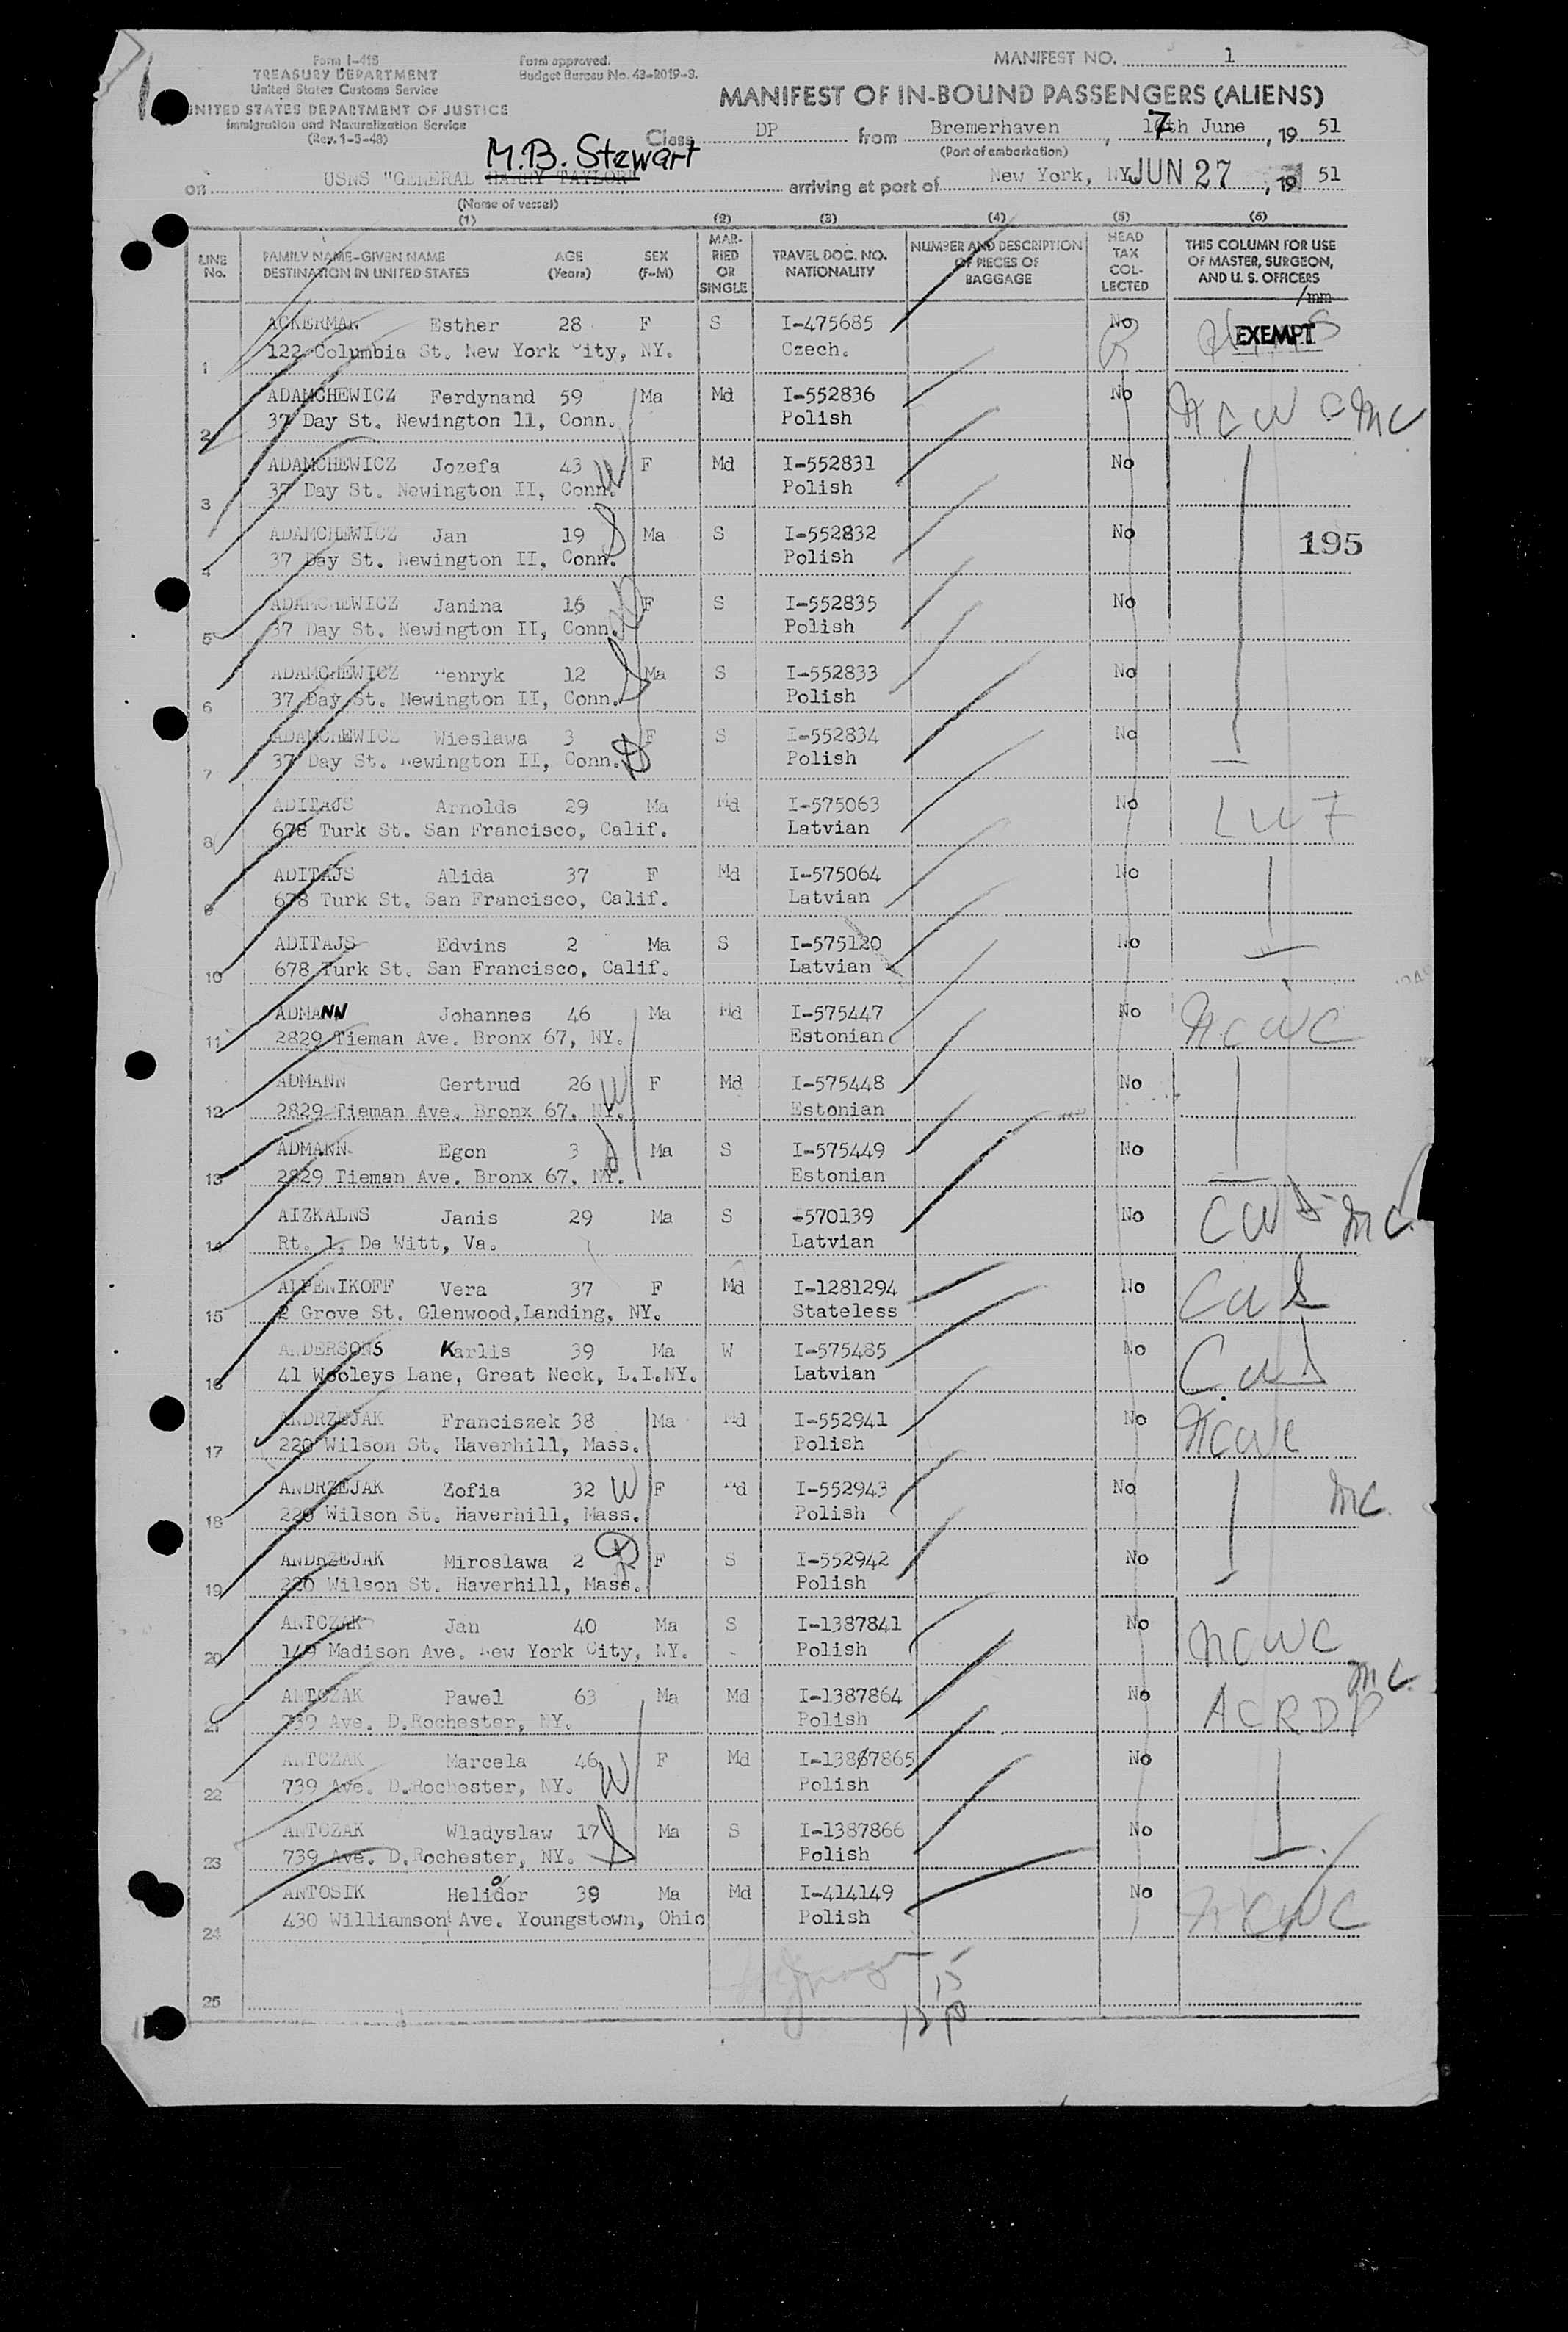 Form I-415
TREASURY DEPARTMENT
United States Customs Service
UNITED STATES DEPARTMENT OF JUSTICE
Immigration and Naturalization Service
(Rev. 1-5-48)
Form approved.
Budget Bureau No. 43-R019-3.
MANIFEST NO. 1
MANIFEST OF IN-BOUND PASSENGERS (ALIENS)
Class DP from Bremerhaven, 17th June, 1951
(Port of embarkation)
M.B. Stewart
on USNS "GENERAL HARRY TAYLOR" arriving at port of New York, NY. JUN 27, 1951
(Name of vessel)
(1) (2) (3) (4) (5) (6)
LINE No. FAMILY NAME-GIVEN NAME DESTINATION IN UNITED STATES AGE (Years) SEX (F-M) MARRIED OR SINGLE TRAVEL DOC. NO. NATIONALITY NUMBER AND DESCRIPTION OF PIECES OF BAGGAGE HEAD TAX COLLECTED THIS COLUMN FOR USE OF MASTER, SURGEON, AND U. S. OFFICERS
ACKERMAN Esther 28 F S I-475685 No EXEMPT
1 122 Columbia St. New York City, NY. Czech.
ADAMCHEWICZ Ferdynand 59 Ma Md I-552836 No NCWC MC
2 37 Day St. Newington 11, Conn. Polish
ADAMCHEWICZ Jozefa 43 W F Md I-552831 No
3 37 Day St. Newington II, Conn. Polish
ADAMCHEWICZ Jan 19 S Ma S I-552832 No 195
4 37 Day St. Newington II, Conn. Polish
ADAMCHEWICZ Janina 16 F S I-552835 No
5 37 Day St. Newington II, Conn. Polish
ADAMCHEWICZ Henryk 12 S Ma S I-552833 No
6 37 Day St. Newington II, Conn. Polish
ADAMCHEWICZ Wieslawa 3 D F S I-552834 No
7 37 Day St. Newington II, Conn. Polish
ADITAJS Arnolds 29 Ma Md I-575063 No LWF
8 678 Turk St. San Francisco, Calif. Latvian
ADITAJS Alida 37 F Md I-575064 No
9 678 Turk St. San Francisco, Calif. Latvian
ADITAJS Edvins 2 Ma S I-575120 No
10 678 Turk St. San Francisco, Calif. Latvian
ADMANN Johannes 46 Ma Md I-575447 No NCWC
11 2829 Tieman Ave. Bronx 67, NY. Estonian
ADMANN Gertrud 26 W F Md I-575448 No
12 2829 Tieman Ave. Bronx 67, NY. Estonian
ADMANN Egon 3 S Ma S I-575449 No
13 2829 Tieman Ave. Bronx 67, NY. Estonian
AIZKALNS Janis 29 Ma S -570139 No CWS MC.
14 Rt. 1, De Witt, Va. Latvian
ALPENIKOFF Vera 37 F Md I-1281294 No CWS
15 2 Grove St. Glenwood, Landing, NY. Stateless
ANDERSONS Karlis 39 Ma W I-575485 No CWS
16 41 Wooleys Lane, Great Neck, L.I.NY. Latvian
ANDRZEJAK Franciszek 38 Ma Md I-552941 No NCWC
17 220 Wilson St. Haverhill, Mass. Polish
ANDRZEJAK Zofia 32 W F Md I-552943 No MC.
18 220 Wilson St. Haverhill, Mass. Polish
ANDRZEJAK Miroslawa 2 D F S I-552942 No
19 220 Wilson St. Haverhill, Mass. Polish
ANTCZAK Jan 40 Ma S I-1387841 No NCWC
20 149 Madison Ave. New York City, NY. Polish
ANTCZAK Pawel 63 Ma Md I-1387864 No ACRDP MC.
21 739 Ave. D.Rochester, NY. Polish
ANTCZAK Marcela 46 W F Md I-1387865 No
22 739 Ave. D.Rochester, NY. Polish
ANTCZAK Wladyslaw 17 S Ma S I-1387866 No
23 739 Ave. D.Rochester, NY. Polish
ANTOSIK Heliodor 39 Ma Md I-414149 No NCWC
24 430 Williamson Ave. Youngstown, Ohio Polish
25